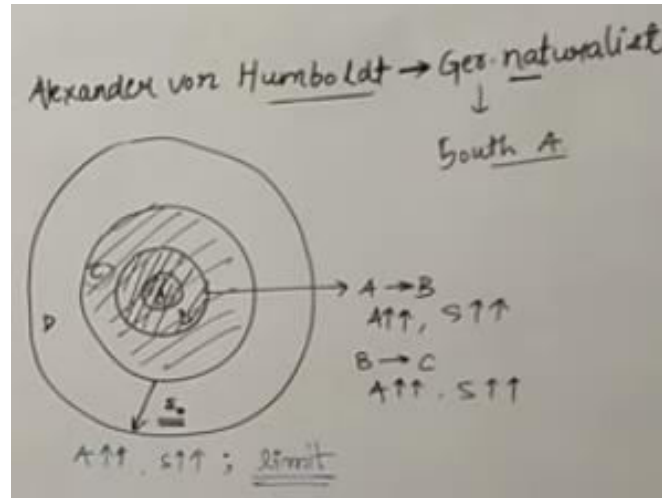 Alexander von Humboldt → Ger. naturalist
↓
South A
A
B
C
D
A → B
A↑↑, S↑↑
B → C
A↑↑, S↑↑
A↑↑, S↑↑ ; limit